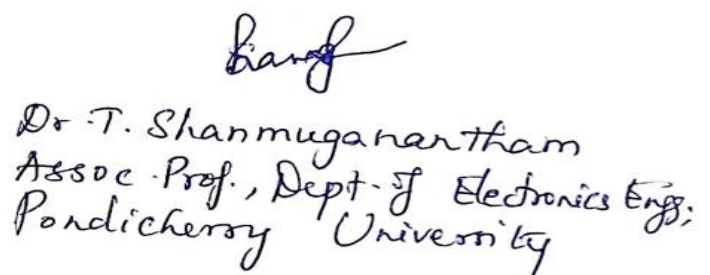 Dr. T. Shanmuganantham
Assoc. Prof., Dept. of Electronics Engg;
Pondicherry University